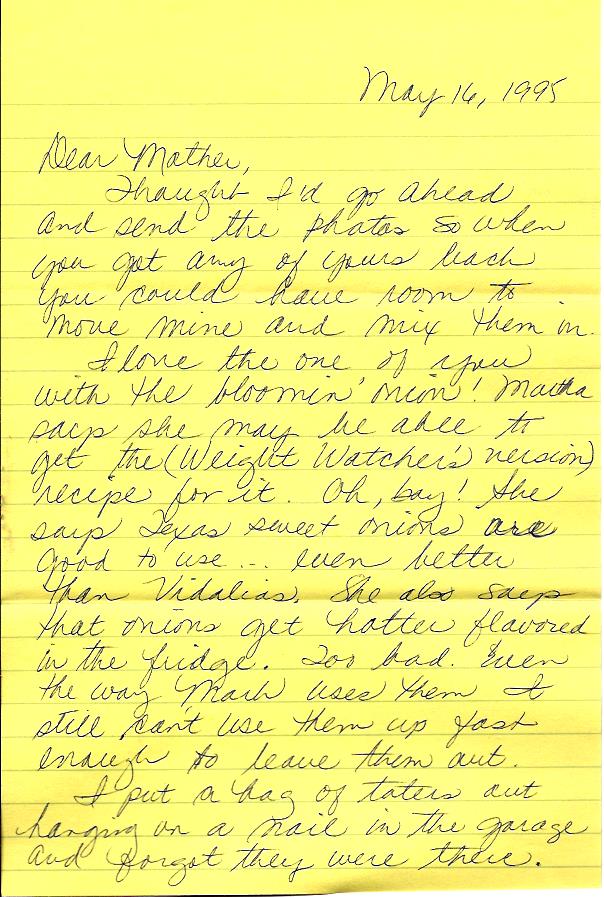 May 16, 1995
Dear Mother,
Thought I'd go ahead
and send the photos so when
you got any of yours back
you could have room to
move mine and mix them in.
I love the one of you
with the bloomin' onion! Martha
says she may be able to
get the (Weight Watcher's version)
recipe for it. Oh, boy! She
says Texas sweet onions are
good to use... even better
than Vidalias. She also says
that onions get hotter flavored
in the fridge. Too bad. Even
the way Mark uses them I
still can't use them up fast
enough to leave them out.
I put a bag of taters out
hanging on a nail in the garage
and forgot they were there.